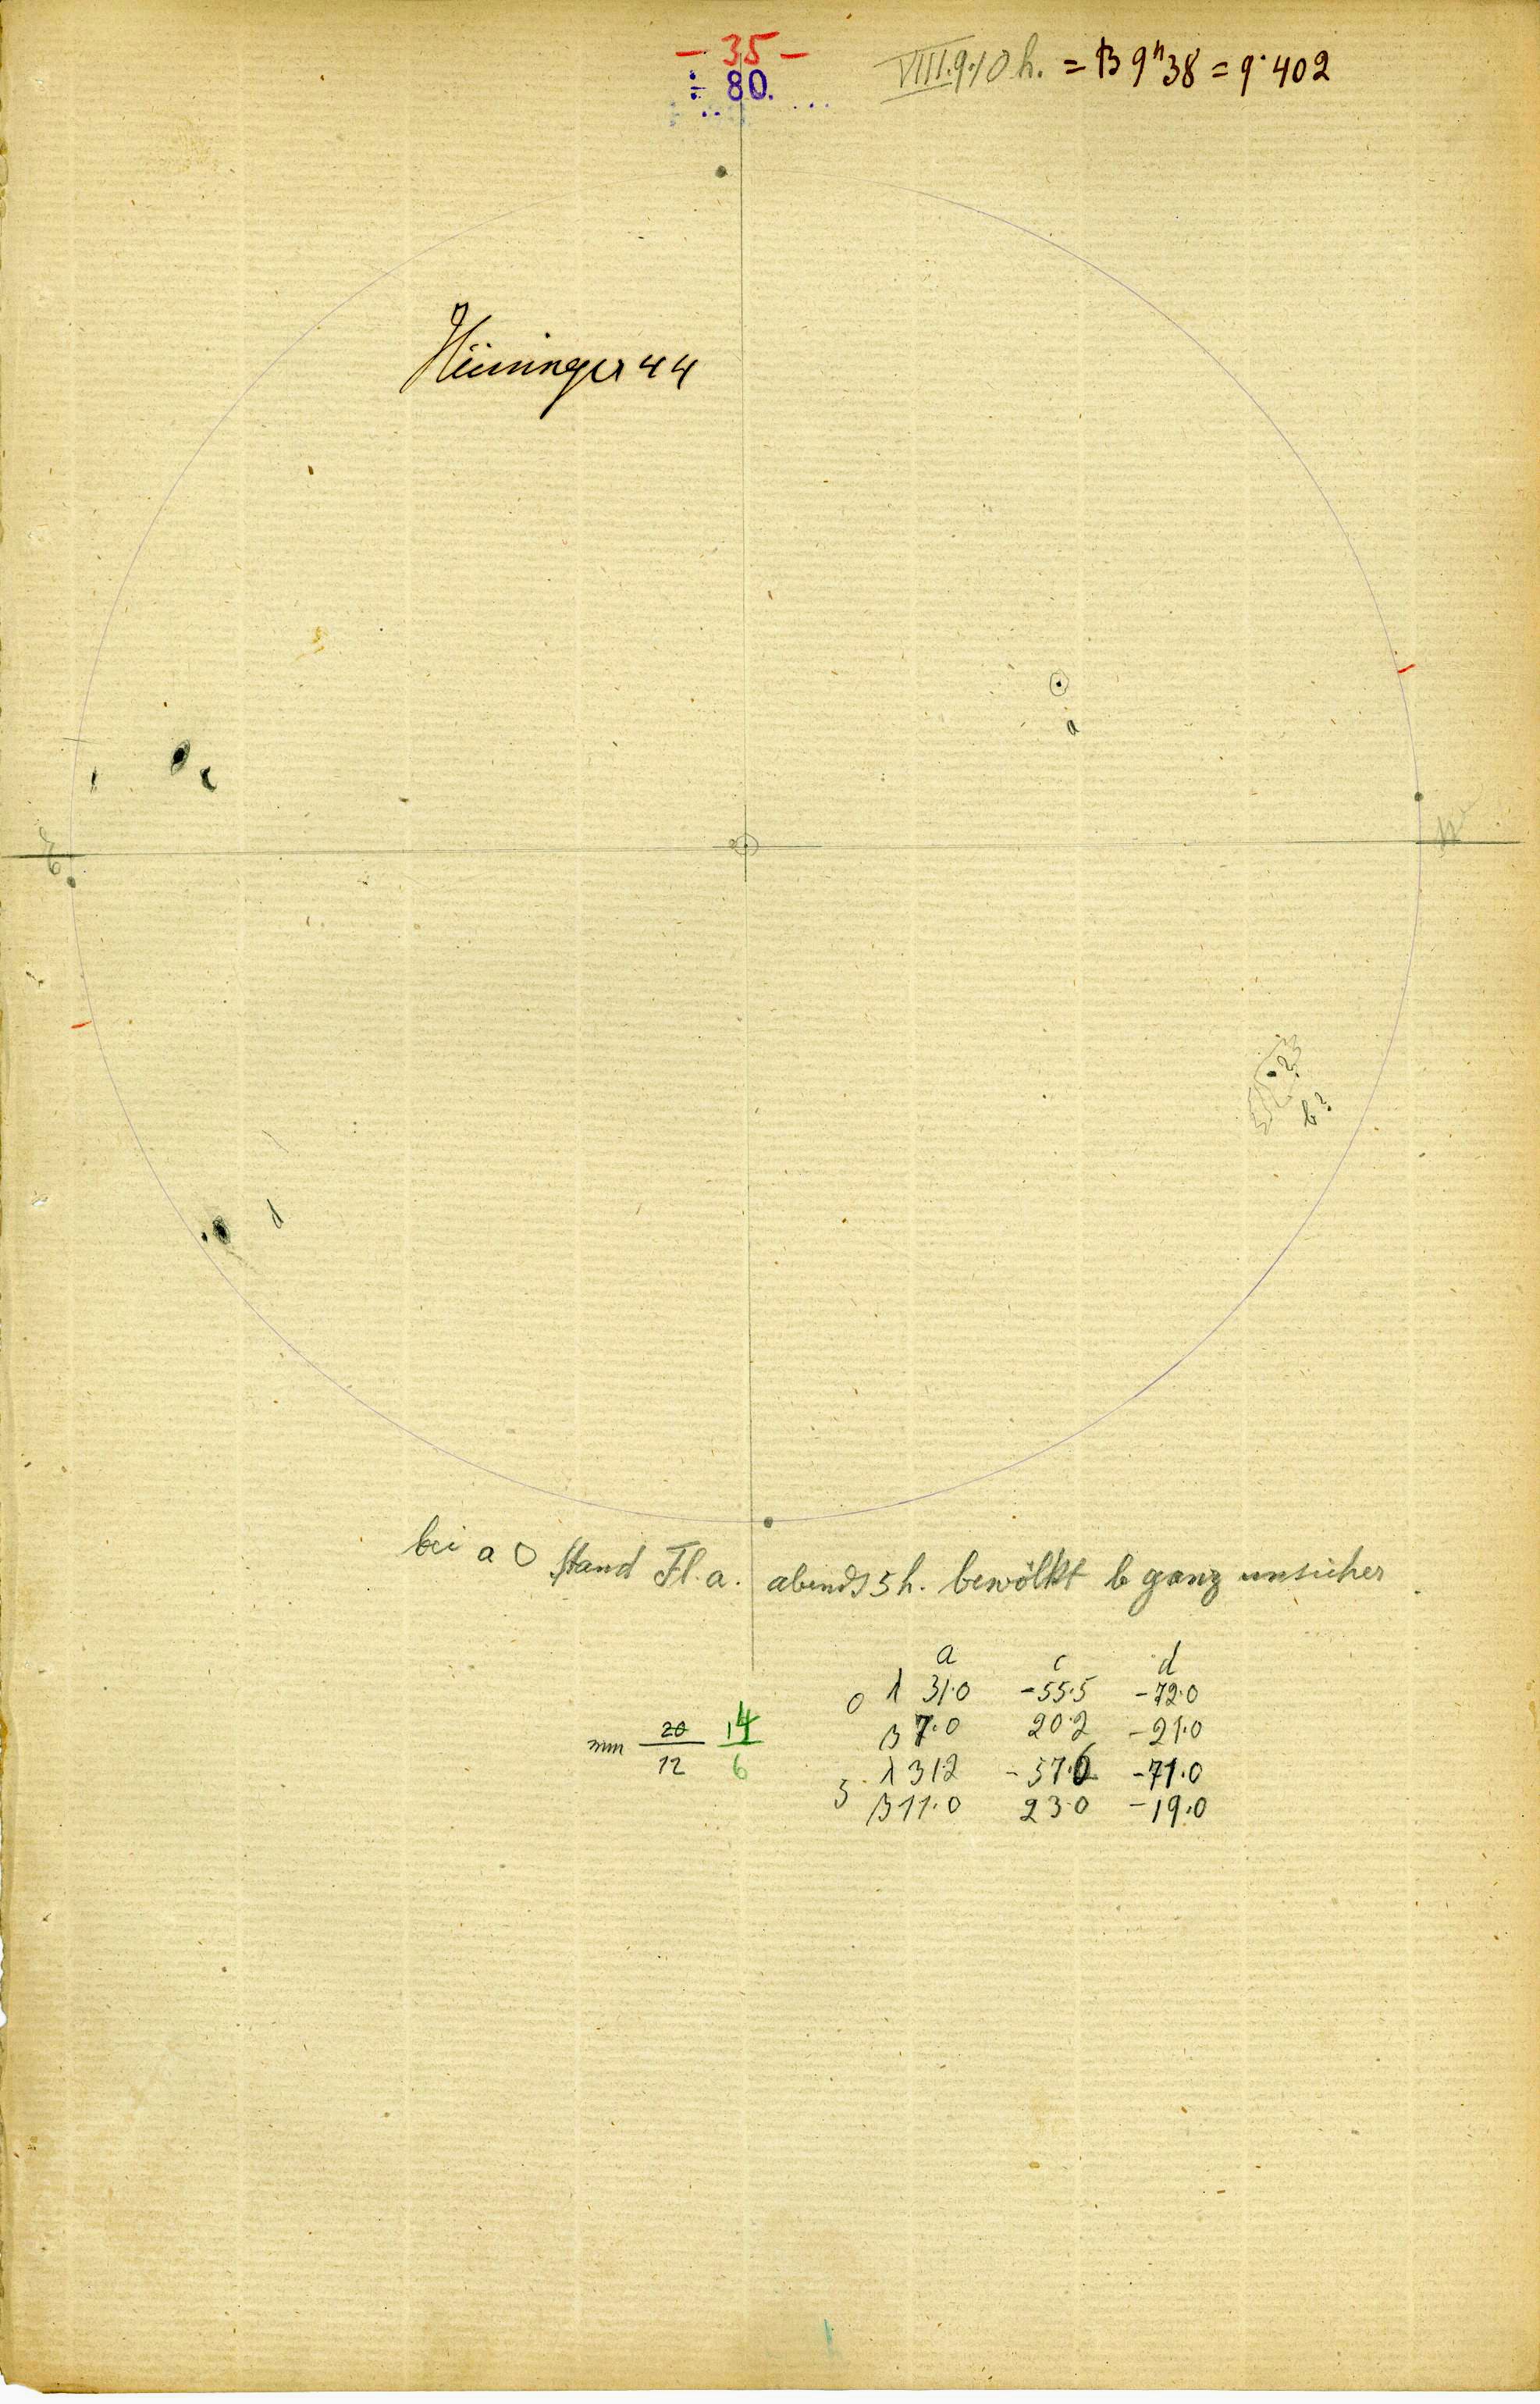 - 35 -
÷ 80.
VIII.9.10 h. = B 9h38 = 9.402
44
a
c
b?
?
d
bei a O stand Fl. a. abends 5 h. bewölkt b ganz unsicher
a c d
0 λ 31.0 -55.5 -72.0
β 7.0 20.2 -21.0
mm 20/12 14/6
5 λ 31.2 -57.6 -71.0
β 11.0 23.0 -19.0